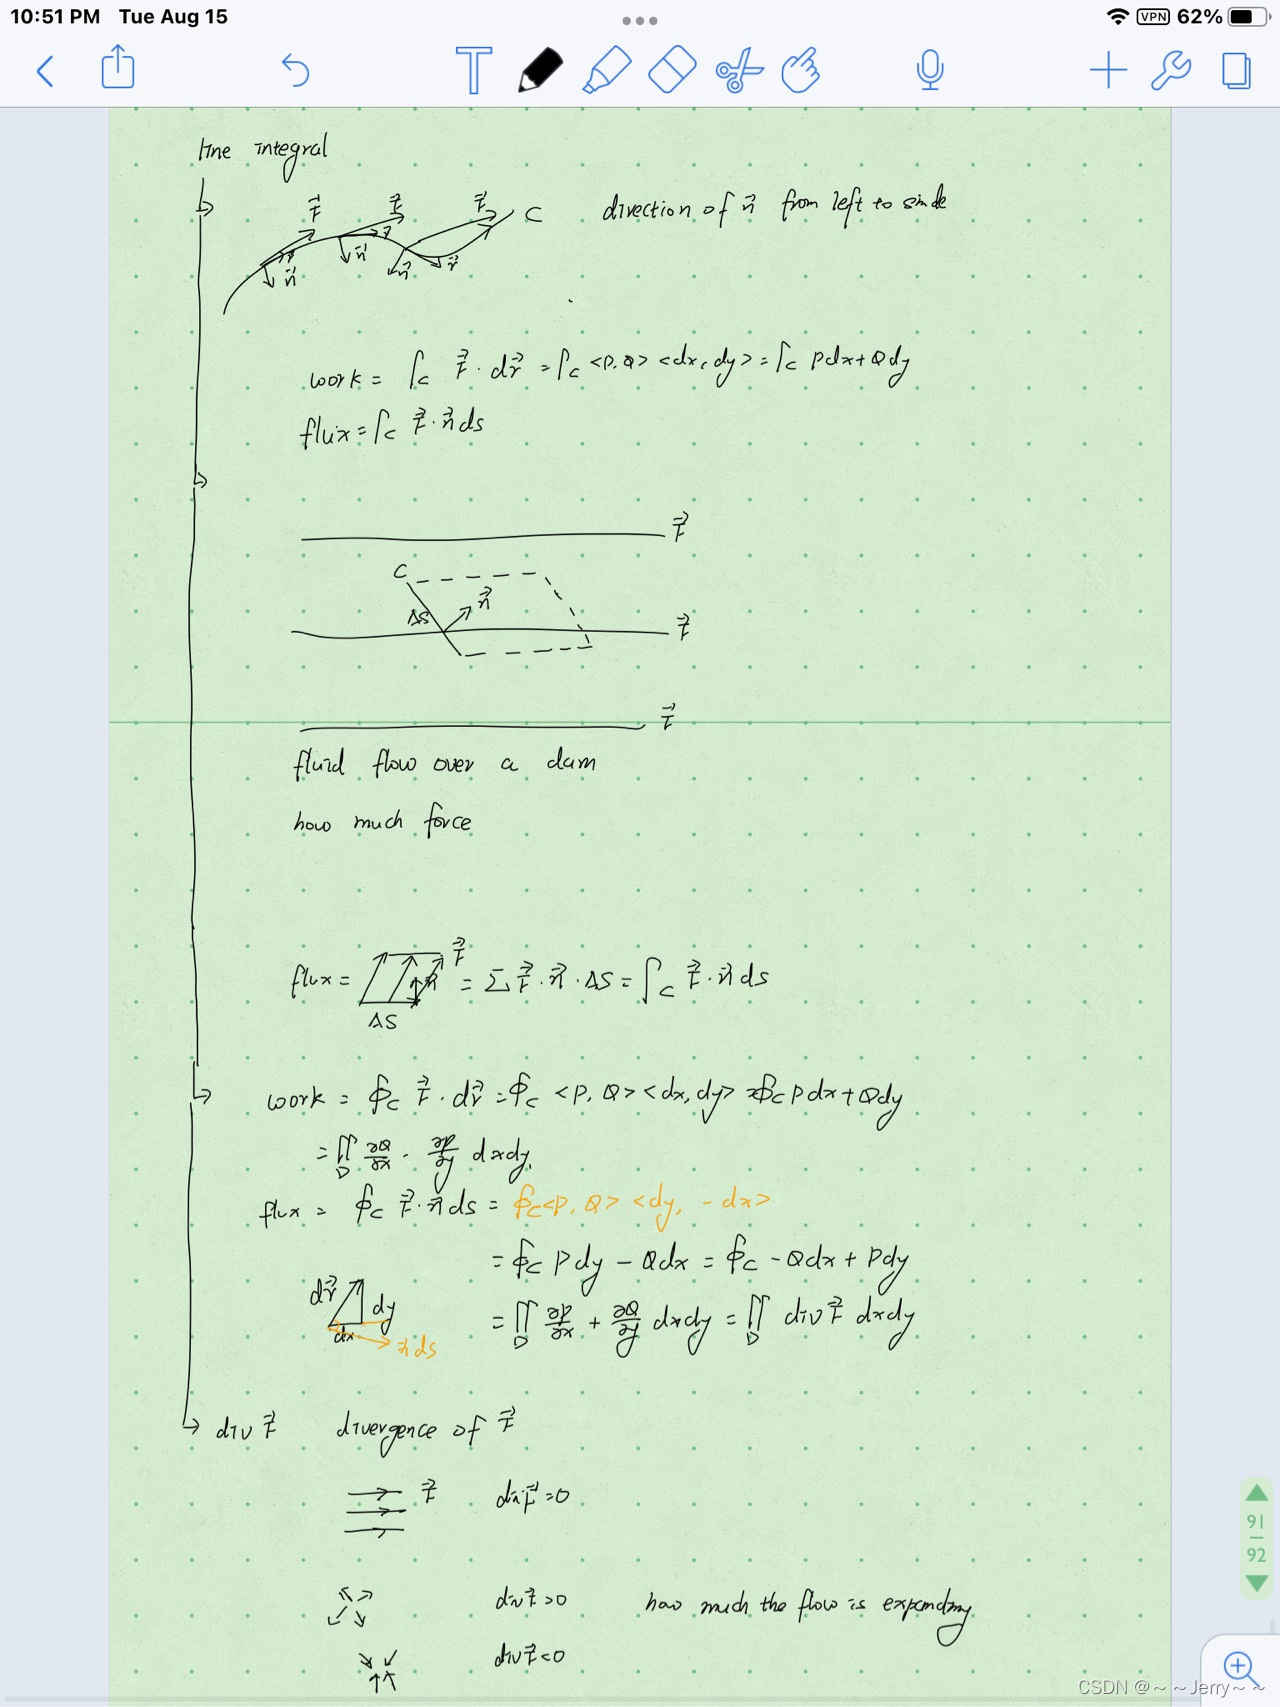 10:51 PM Tue Aug 15
VPN 62%
line integral
F⃗ F⃗ F⃗ C direction of n⃗ from left to
n⃗ n⃗ n⃗ r⃗
work = ∫_C F⃗ · dr⃗ = ∫_C <P, Q> <dx, dy> = ∫_C Pdx + Qdy
flux = ∫_C F⃗ · n⃗ ds
F⃗
C
ΔS n⃗
F⃗
F⃗
fluid flow over a dam
how much force
flux = n⃗ F⃗ = Σ F⃗ · n⃗ · ΔS = ∫_C F⃗ · n⃗ ds
ΔS
work = ∮_C F⃗ · dr⃗ = ∮_C <P, Q> <dx, dy> = ∮_C Pdx + Qdy
= ∬_D ∂Q/∂x - ∂P/∂y dxdy
flux = ∮_C F⃗ · n⃗ ds = ∮_C <P, Q> <dy, -dx>
= ∮_C Pdy - Qdx = ∮_C -Qdx + Pdy
dr⃗ dy
dx n⃗ ds
= ∬_D ∂P/∂x + ∂Q/∂y dxdy = ∬_D div F⃗ dxdy
div F⃗ divergence of F⃗
F⃗ div F⃗ = 0
div F⃗ > 0 how much the flow is expanding
div F⃗ < 0
91
92
CSDN @～～Jerry～～